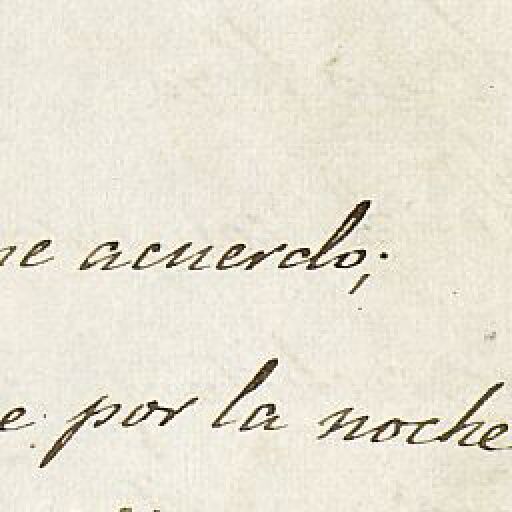 me acuerdo;
e por la noche